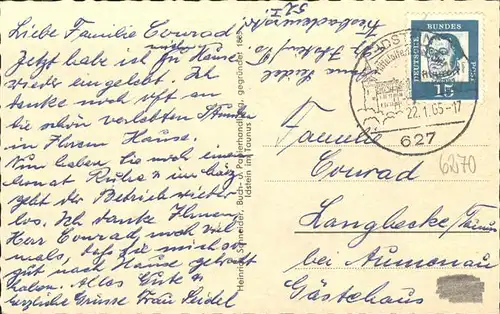 Liebe Familie Conrad
Jetzt habe ich mich zu Hause
wieder eingelebt. Ich
denke noch oft an
die schön verlebten Stunden
in Ihrem Hause.
Nun haben Sie noch einen
Monat Ruhe, im März
geht der Betrieb wieder
los. Ich danke Ihnen
Herr Conrad, noch viel-
mals, daß Sie mich so
gut nach Hause gebracht
haben. Alles Gute u.
herzliche Grüsse Frau Seidel
Seidel
Idstein/Ts
Heinrich Schneider, Buch- u. Papierhandlung, gegründet
Idstein im Taunus
DEUTSCHE BUNDESPOST
15
IDSTEIN
22.1.65-17
627
6270
Familie
Conrad
Langhecke/Taunus
bei Aumenau
Gästehaus